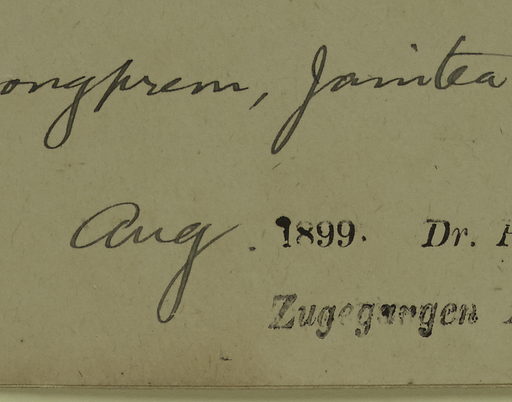 ongprem, Jaintea
Aug. 1899. Dr.
Zugegangen